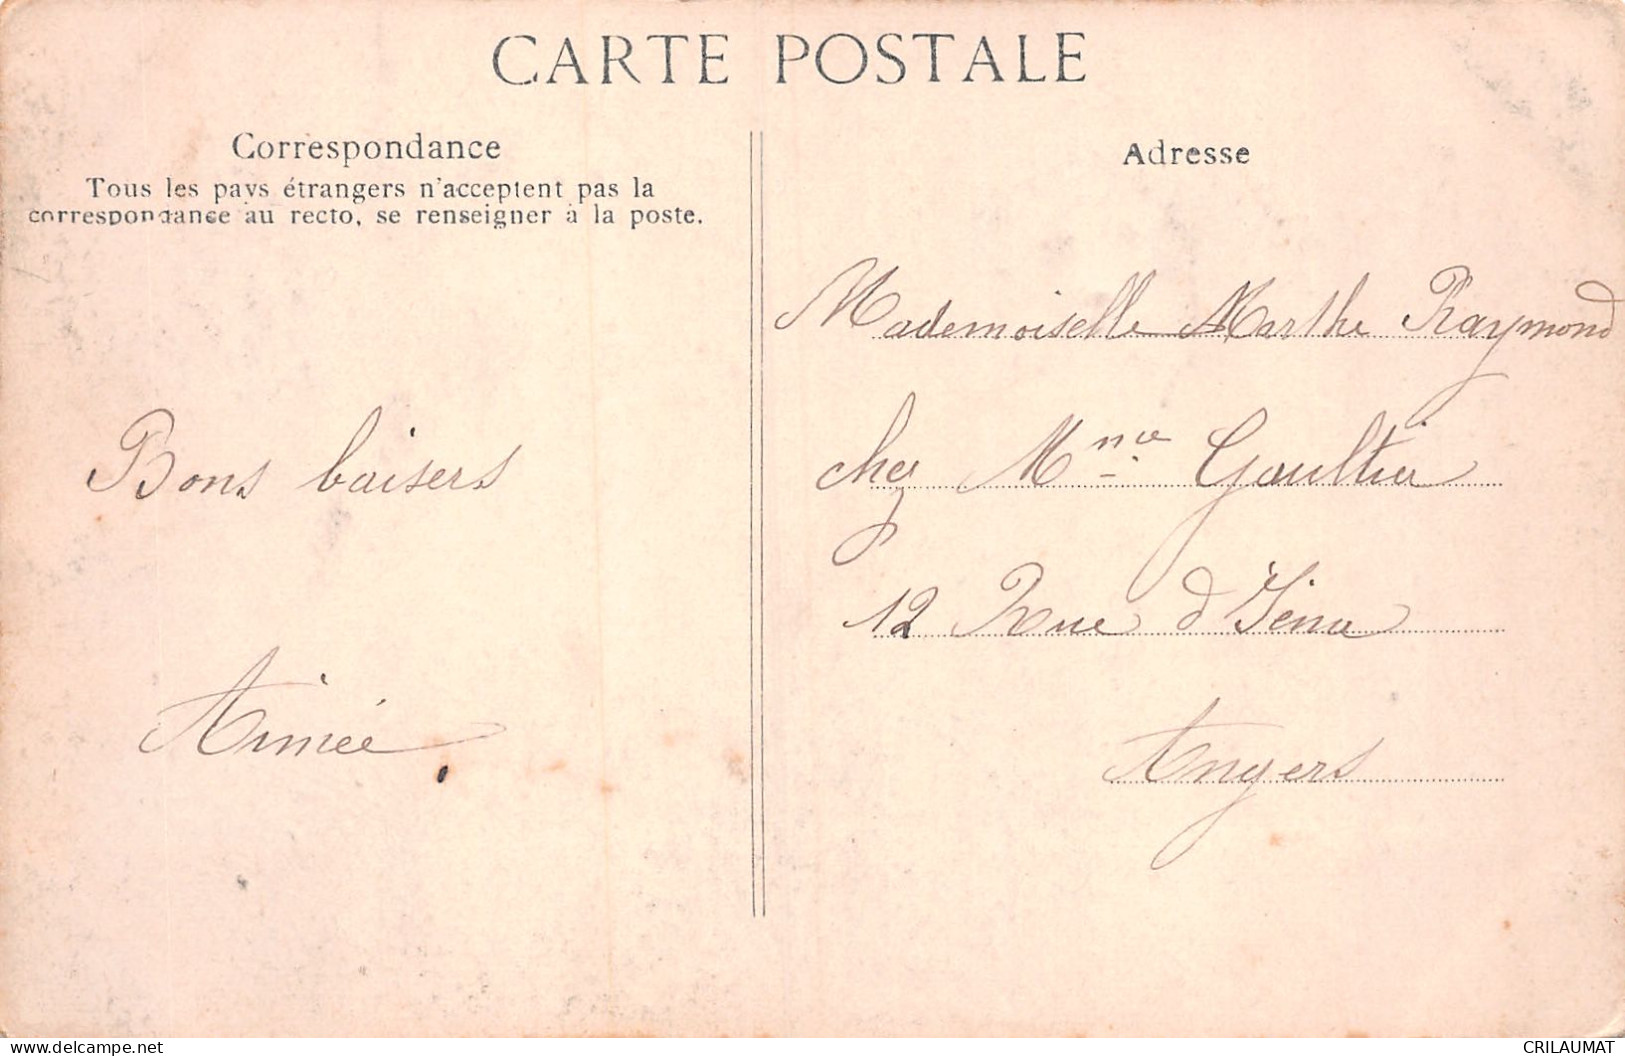 CARTE POSTALE
Correspondance
Tous les pays étrangers n'acceptent pas la
correspondance au recto, se renseigner à la poste.
Bons baisers
Aimée
Adresse
Mademoiselle Marthe Raymond
chez Mme Gaultier
12 Rue d'Iéna
Angers
www.delcampe.net
CRILAUMAT